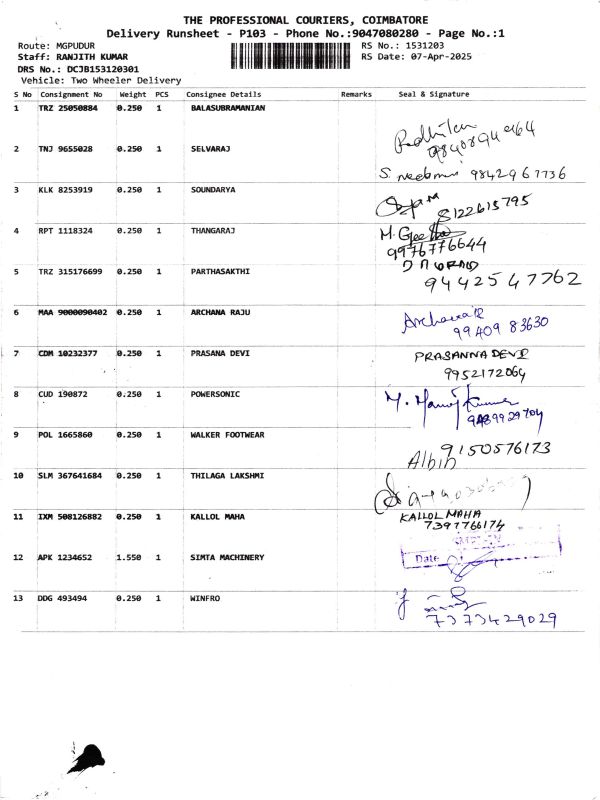 THE PROFESSIONAL COURIERS, COIMBATORE
Delivery Runsheet - P103 - Phone No.:9047080280 - Page No.:1
Route: MGPUDUR RS No.: 1531203
Staff: RANJITH KUMAR RS Date: 07-Apr-2025
DRS No.: DCJB153120301
Vehicle: Two Wheeler Delivery
S No Consignment No Weight PCS Consignee Details Remarks Seal & Signature
1 TRZ 25050884 0.250 1 BALASUBRAMANIAN
2 TNJ 9655028 0.250 1 SELVARAJ
S. 9842967736
3 KLK 8253919 0.250 1 SOUNDARYA
8122615795
4 RPT 1118324 0.250 1 THANGARAJ M. Geetha
9976776644
5 TRZ 315176699 0.250 1 PARTHASAKTHI
9442547762
6 MAA 9000090402 0.250 1 ARCHANA RAJU Archana R
99409 83630
7 CDM 10232377 0.250 1 PRASANA DEVI PRASANNA DEVI
9952172064
8 CUD 190872 0.250 1 POWERSONIC M. Manoj Kumar
9489929704
9 POL 1665860 0.250 1 WALKER FOOTWEAR 9150576173
Albin
10 SLM 367641684 0.250 1 THILAGA LAKSHMI
11 IXM 508126882 0.250 1 KALLOL MAHA KALLOL MAHA
7397766174
12 APK 1234652 1.550 1 SIMTA MACHINERY Date
13 DDG 493494 0.250 1 WINFRO
7373429029